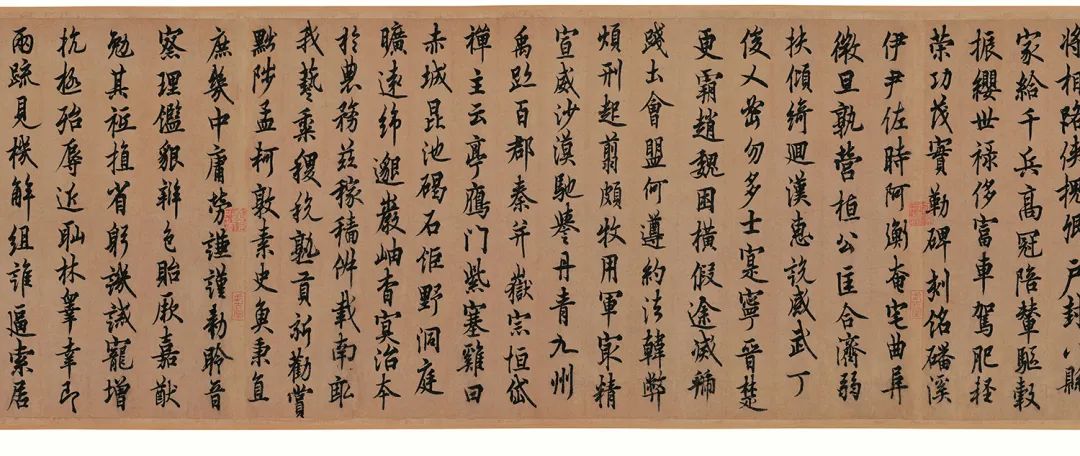 將相路俠槐卿户封八縣
家給千兵高冠陪輦驅轂
振纓世祿侈富車駕肥輕
策功茂實勒碑刻銘磻溪
伊尹佐時阿衡奄宅曲阜
微旦孰營桓公匡合濟弱
扶傾綺迴漢惠説感武丁
俊乂密勿多士寔寧晉楚
更霸趙魏困橫假途滅虢
踐土會盟何遵約法韓弊
煩刑起翦頗牧用軍最精
宣威沙漠馳譽丹青九州
禹跡百郡秦并嶽宗恒岱
禪主云亭鴈門紫塞雞田
赤城昆池碣石鉅野洞庭
曠遠綿邈巖岫杳冥治本
於農務茲稼穡俶載南畝
我藝黍稷稅熟貢新勸賞
黜陟孟軻敦素史魚秉直
庶幾中庸勞謙謹勑聆音
察理鑑貌辨色貽厥嘉猷
勉其祗植省躬譏誡寵增
抗極殆辱近恥林皋幸即
兩疏見機解組誰逼索居